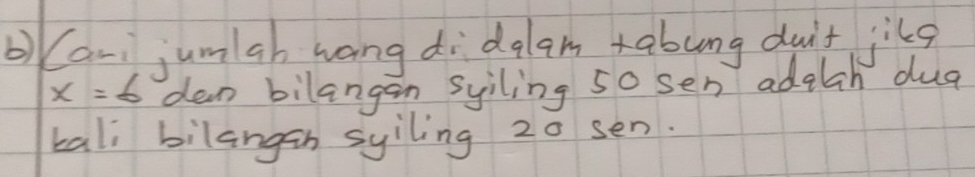 b) Cari jumlah wang di dalam tabung duit jika
x = 6 dan bilangan syiling 50 sen adalah dua
kali bilangan syiling 20 sen.